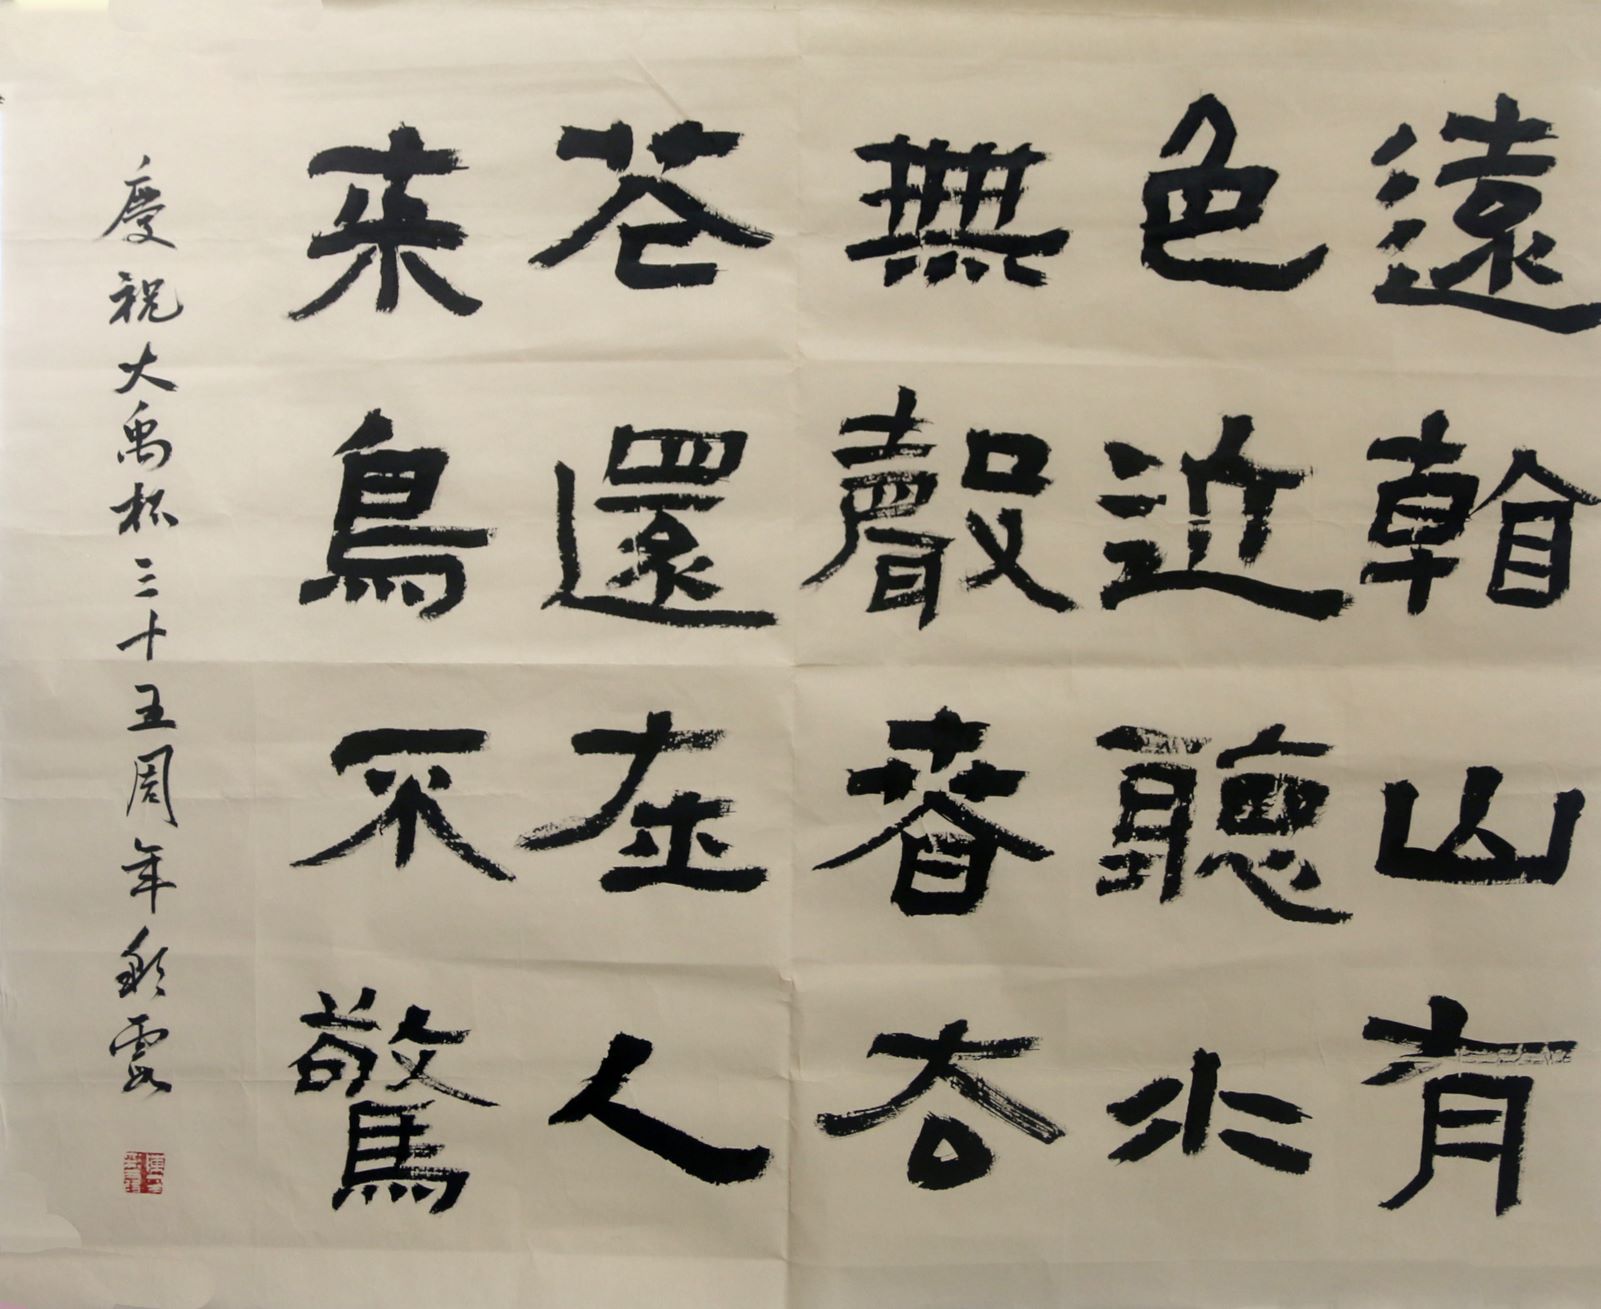 遠看山有
色近聽水
無聲春去
花還在人
来鳥不驚
慶祝大禹杯三十五周年彩雲